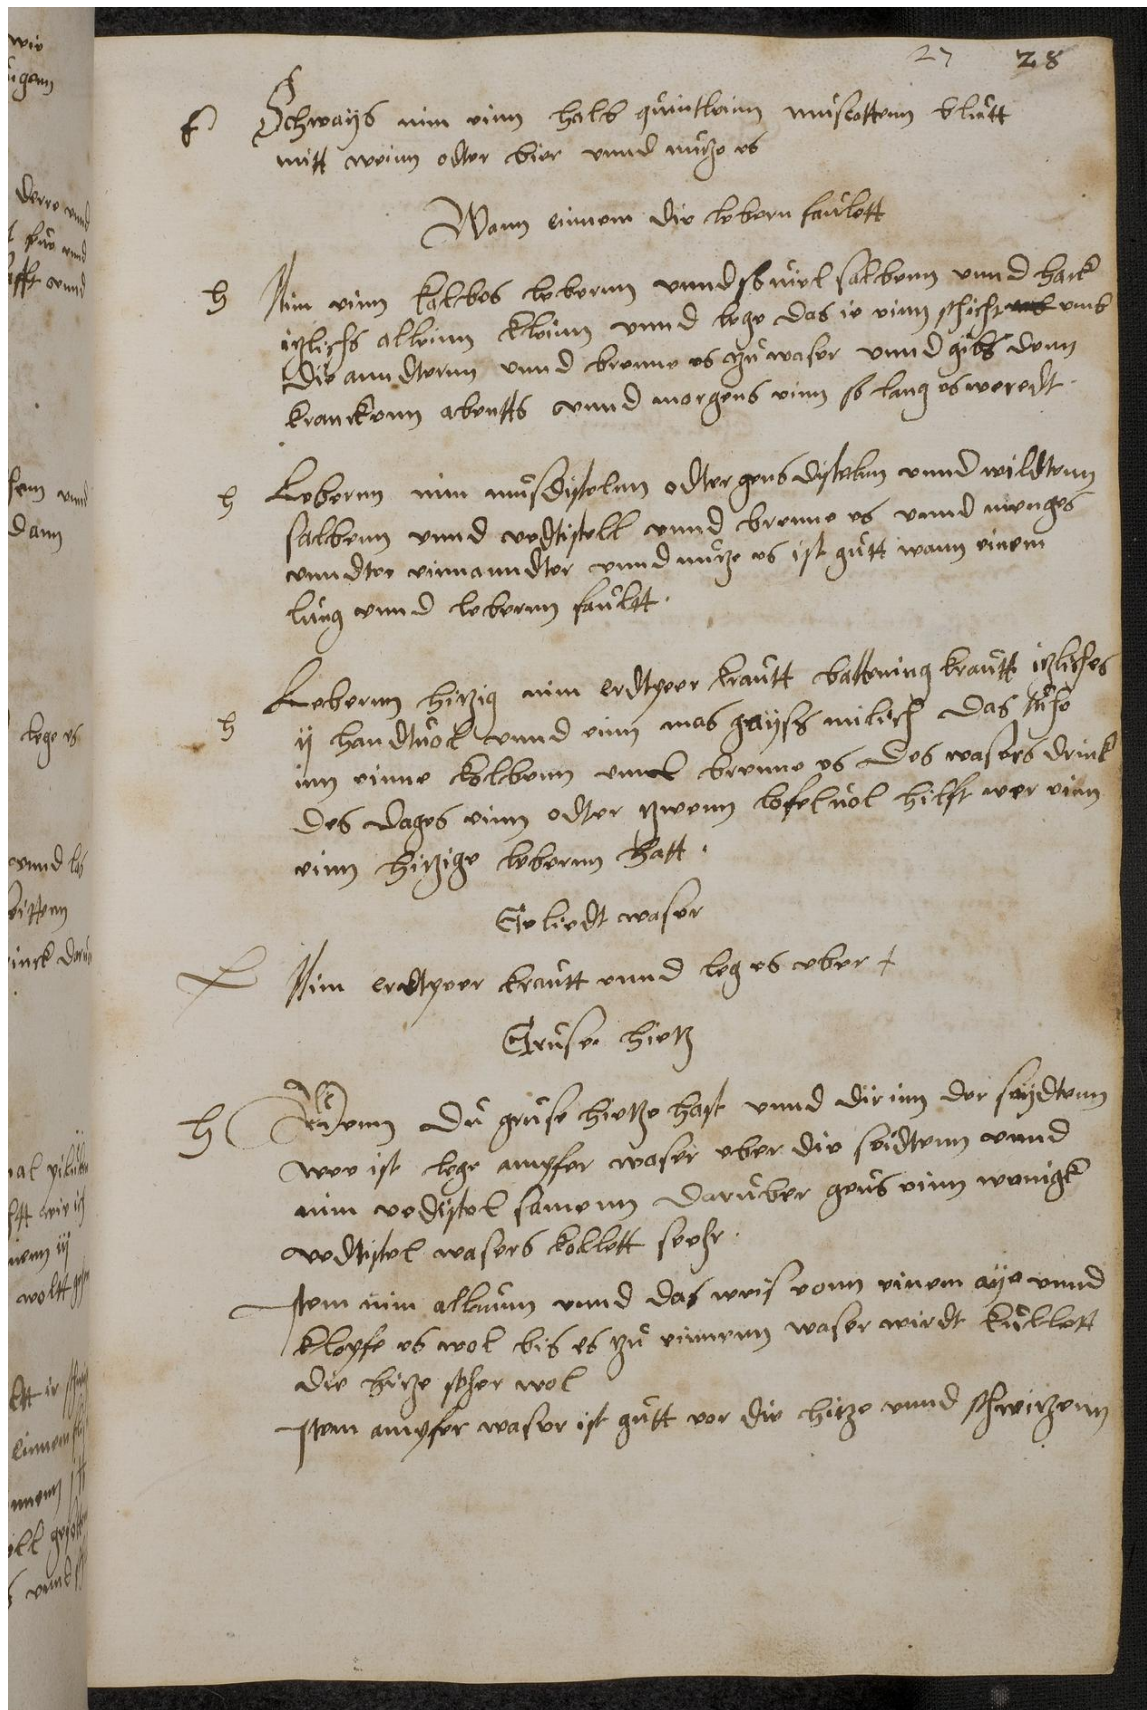 27 28
f Schways nim einn halb quintleinn muscattenn bluett
mitt weinn odter bier vnnd nutze es
Wann einnem die lebern faulett
h Nim einn Kalbes lebernn vnnd so viel salbenn vnnd hack
itzlichs alleinn kleinn vnnd lege das ie einn schicht vmb
die anndternn vnnd brenne es zu waser vnnd gibs denn
kranckenn abentts vnnd morgens einn so lang es weredt
h Lebernn nim musdistelnn odter gensdistelnn vnnd wildtenn
salbenn vnnd vedtistell vnnd brenne es vnnd menges
vnndter einnanndter vnnd nutze es ist gutt wann einem
lung vnnd lebernn faultt
h Lebernn hitzig nim erdtpeer krautt battening krautt itzliches
ij handtuol vnnd einn mas gayss milich das thue
inn einne kolbenn vnnd brenne es des wasers drinck
des dages einn odter zwenn lofeluol hilfft wer einn
einn hitzige lebernn hatt
Geliedt waser
Nim erdtpeer krautt vnnd leg es vber
Gruse hietz
h Wenn du gruse hietze hast vnnd dir inn der seydtenn
wee ist lege ampfer waser vber die seidtenn vnnd
nim vedistel samenn daruber geus einn wenigk
vedtistel wasers kollett seehr
Item nim allaunn vnnd das weis vonn einem aye vnnd
klopfe es wol bis es zu einnenn waser wirdt kullett
die hitze seher wol
Item ampfer waser ist gutt vor die hitze vnnd schwitzenn